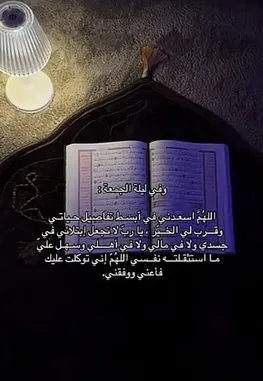 وفي ليلة الجمعة :
اللهُمَّ اسعدني في أبسط تفاصيل حياتي
وقرب لي الخير ، يا ربّ لا تجعل إبتلائي في
جسدي ولا في مالي ولا في أهلي وسهل عليّ
ما أستثقلته نفسي اللهُمّ إني توكلت عليك
فأعني ووفقني.